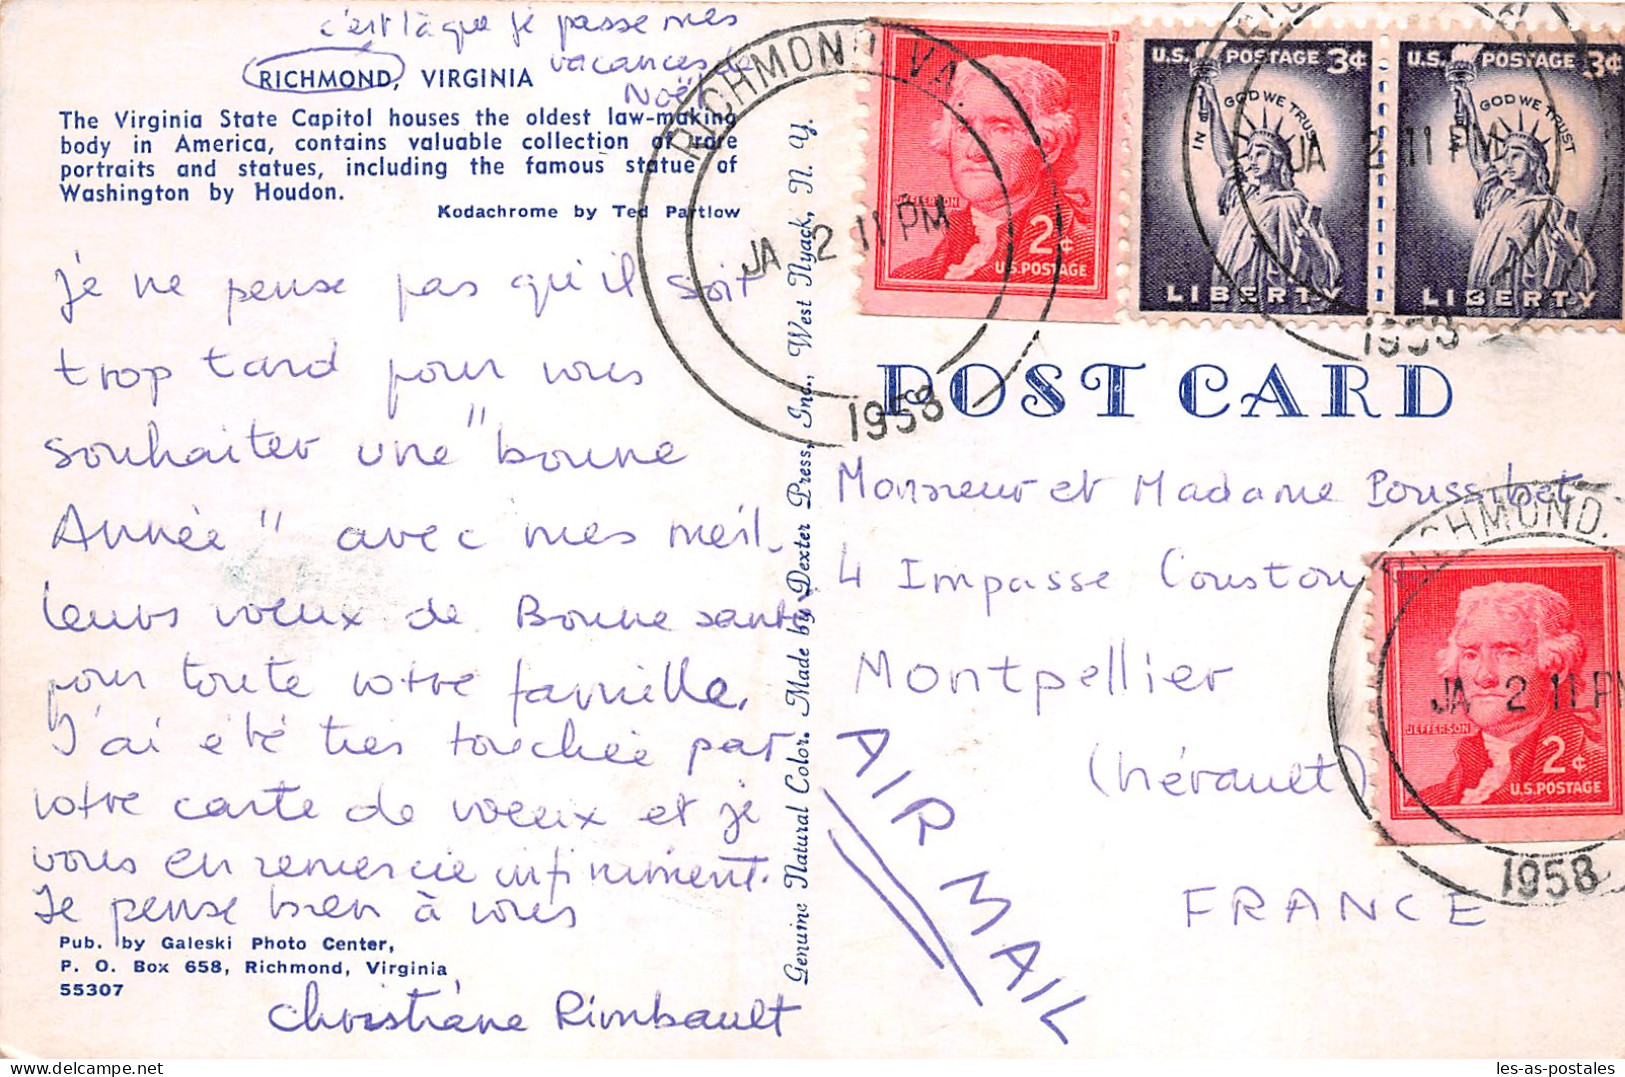 c'est là que je passe mes
vacances de
Noël
RICHMOND, VIRGINIA
The Virginia State Capitol houses the oldest law-making
body in America, contains valuable collection of rare
portraits and statues, including the famous statue of
Washington by Houdon.
Kodachrome by Ted Partlow
Je ne pense pas qu'il soit
trop tard pour vous
souhaiter une "bonne
Année" avec mes meil-
leurs voeux de Bonne santé
pour toute votre famille.
J'ai été très touchée par
votre carte de voeux et je
vous en remercie infiniment.
Je pense bien à vous
Pub. by Galeski Photo Center,
P. O. Box 658, Richmond, Virginia
55307
Christiane Rimbault
Genuine Natural Color. Made by Dexter Press, Inc., West Nyack, N. Y.
RICHMOND, VA.
JA 2 11 PM
1958
JEFFERSON
2¢
U.S. POSTAGE
U.S. POSTAGE 3¢
IN GOD WE TRUST
LIBERTY
U.S. POSTAGE 3¢
IN GOD WE TRUST
LIBERTY
JA 2 11 PM
1958
POST CARD
Monsieur et Madame
4 Impasse Coustou
Montpellier
(Hérault)
FRANCE
AIR MAIL
RICHMOND.
JA 2 11 PM
JEFFERSON
2¢
U.S. POSTAGE
1958
les-as-postales
www.delcampe.net